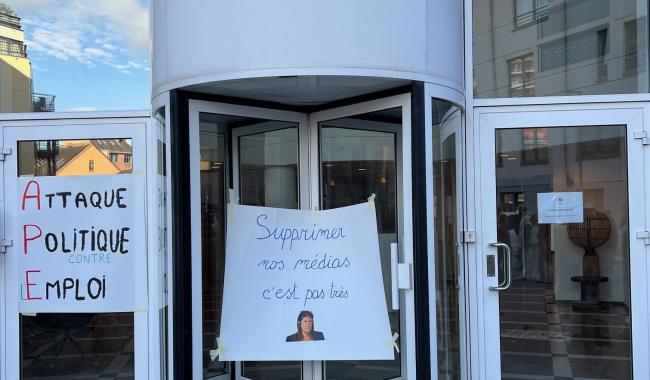 ATTAQUE
POLITIQUE
CONTRE
L'EMPLOI
A
P
E
Supprimer
nos médias
c'est pas très